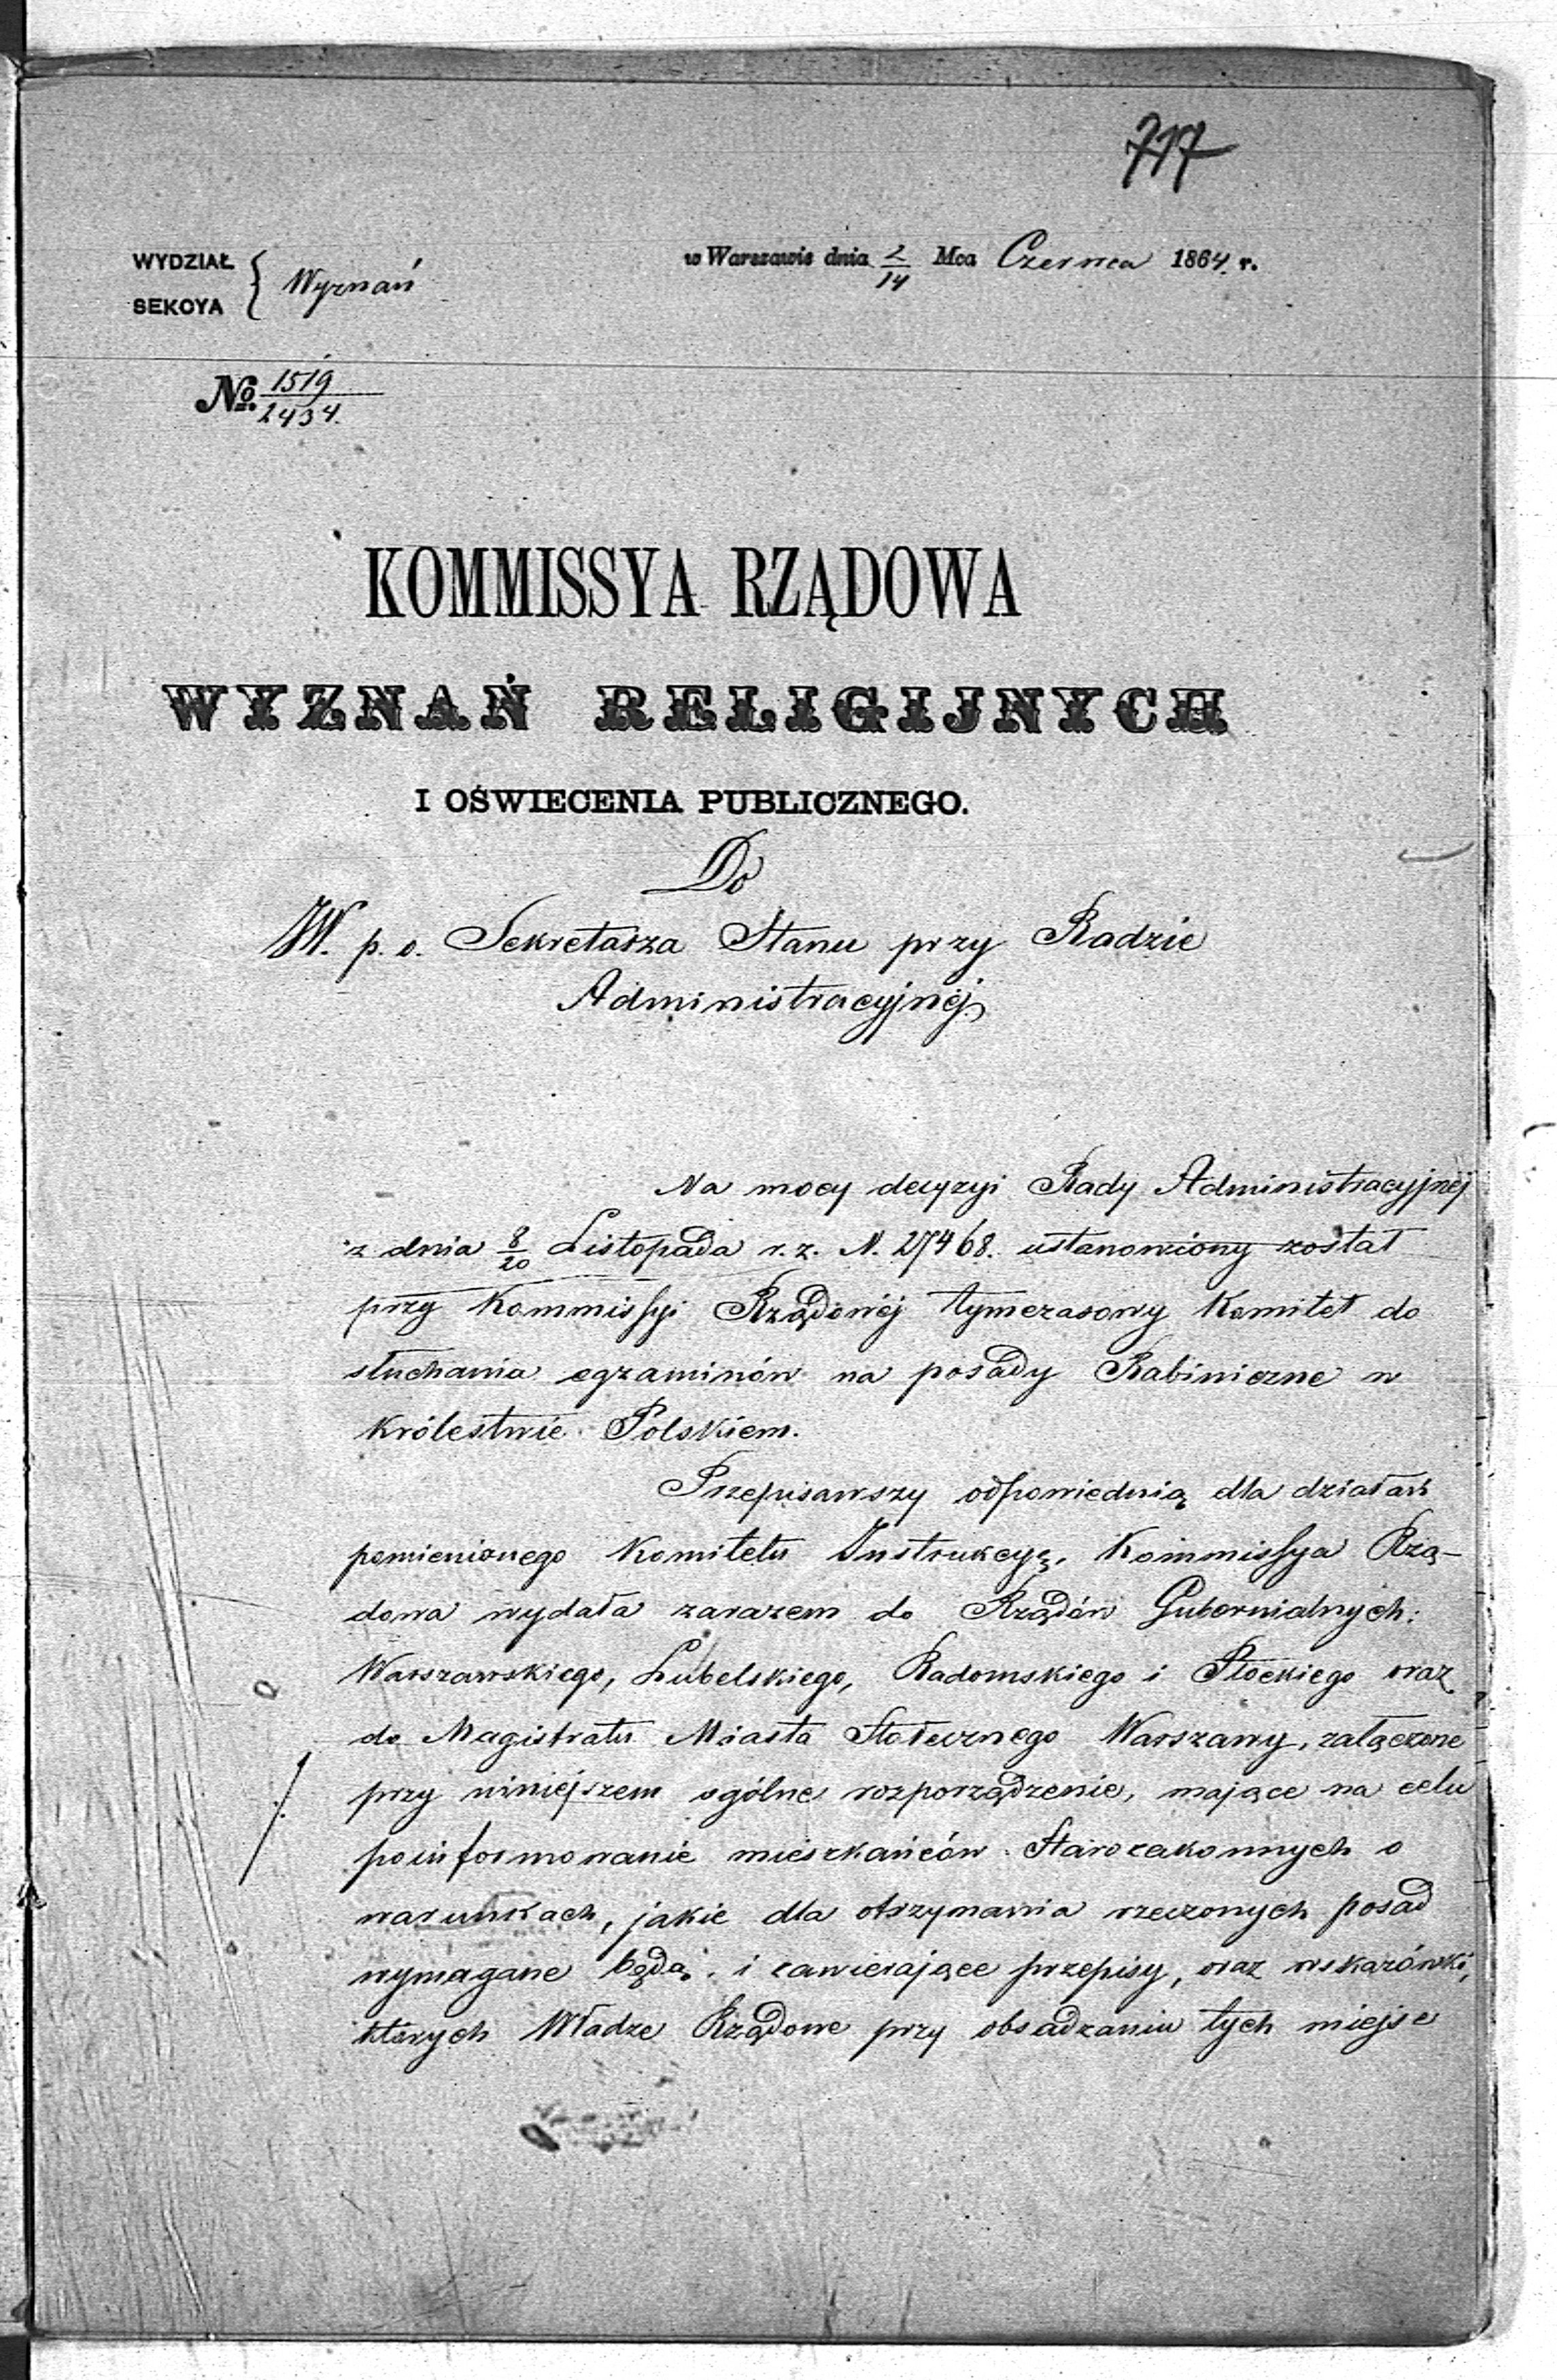 717
WYDZIAŁ
SEKCYA
Wyznań
w Warszawie dnia 2/14 Mca Czerwca 1864 r.
No. 1519/2434.
KOMMISSYA RZĄDOWA
WYZNAŃ RELIGIJNYCH
I OŚWIECENIA PUBLICZNEGO.
Do
W. p. o. Sekretarza Stanu przy Radzie
Administracyjnéj
Na mocy decyzyi Rady Administracyjnéj
z dnia 8/20 Listopada r. z. N. 27468. ustanowiony został
przy Kommissyi Rządowéj tymczasowy Komitet do
słuchania egzaminów na posady Rabiniczne w
Królestwie Polskiem.
Przepisawszy odpowiednią dla działań
pomienionego Komitetu Instrukcyę, Kommissya Rzą-
dowa wydała zarazem do Rządów Gubernialnych:
Warszawskiego, Lubelskiego, Radomskiego i Płockiego oraz
do Magistratu Miasta Stołecznego Warszawy, załączone
przy niniejszem ogólne rozporządzenie, mające na celu
poinformowanie mieszkańców Starozakonnych o
warunkach, jakie dla otrzymania rzeczonych posad
wymagane będą, i zawierające przepisy, oraz wskazówki,
których Władze Rządowe przy obsadzaniu tych miejsc